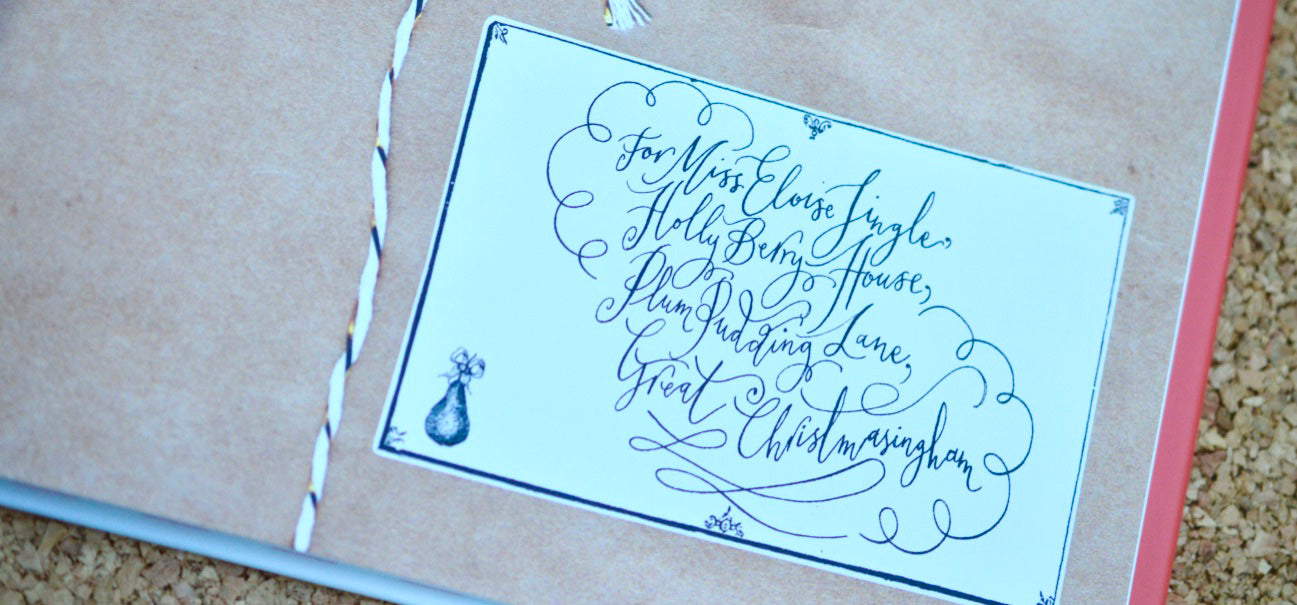 For Miss Eloise Jingle,
Holly Berry House,
Plum Pudding Lane,
Great Christmasingham